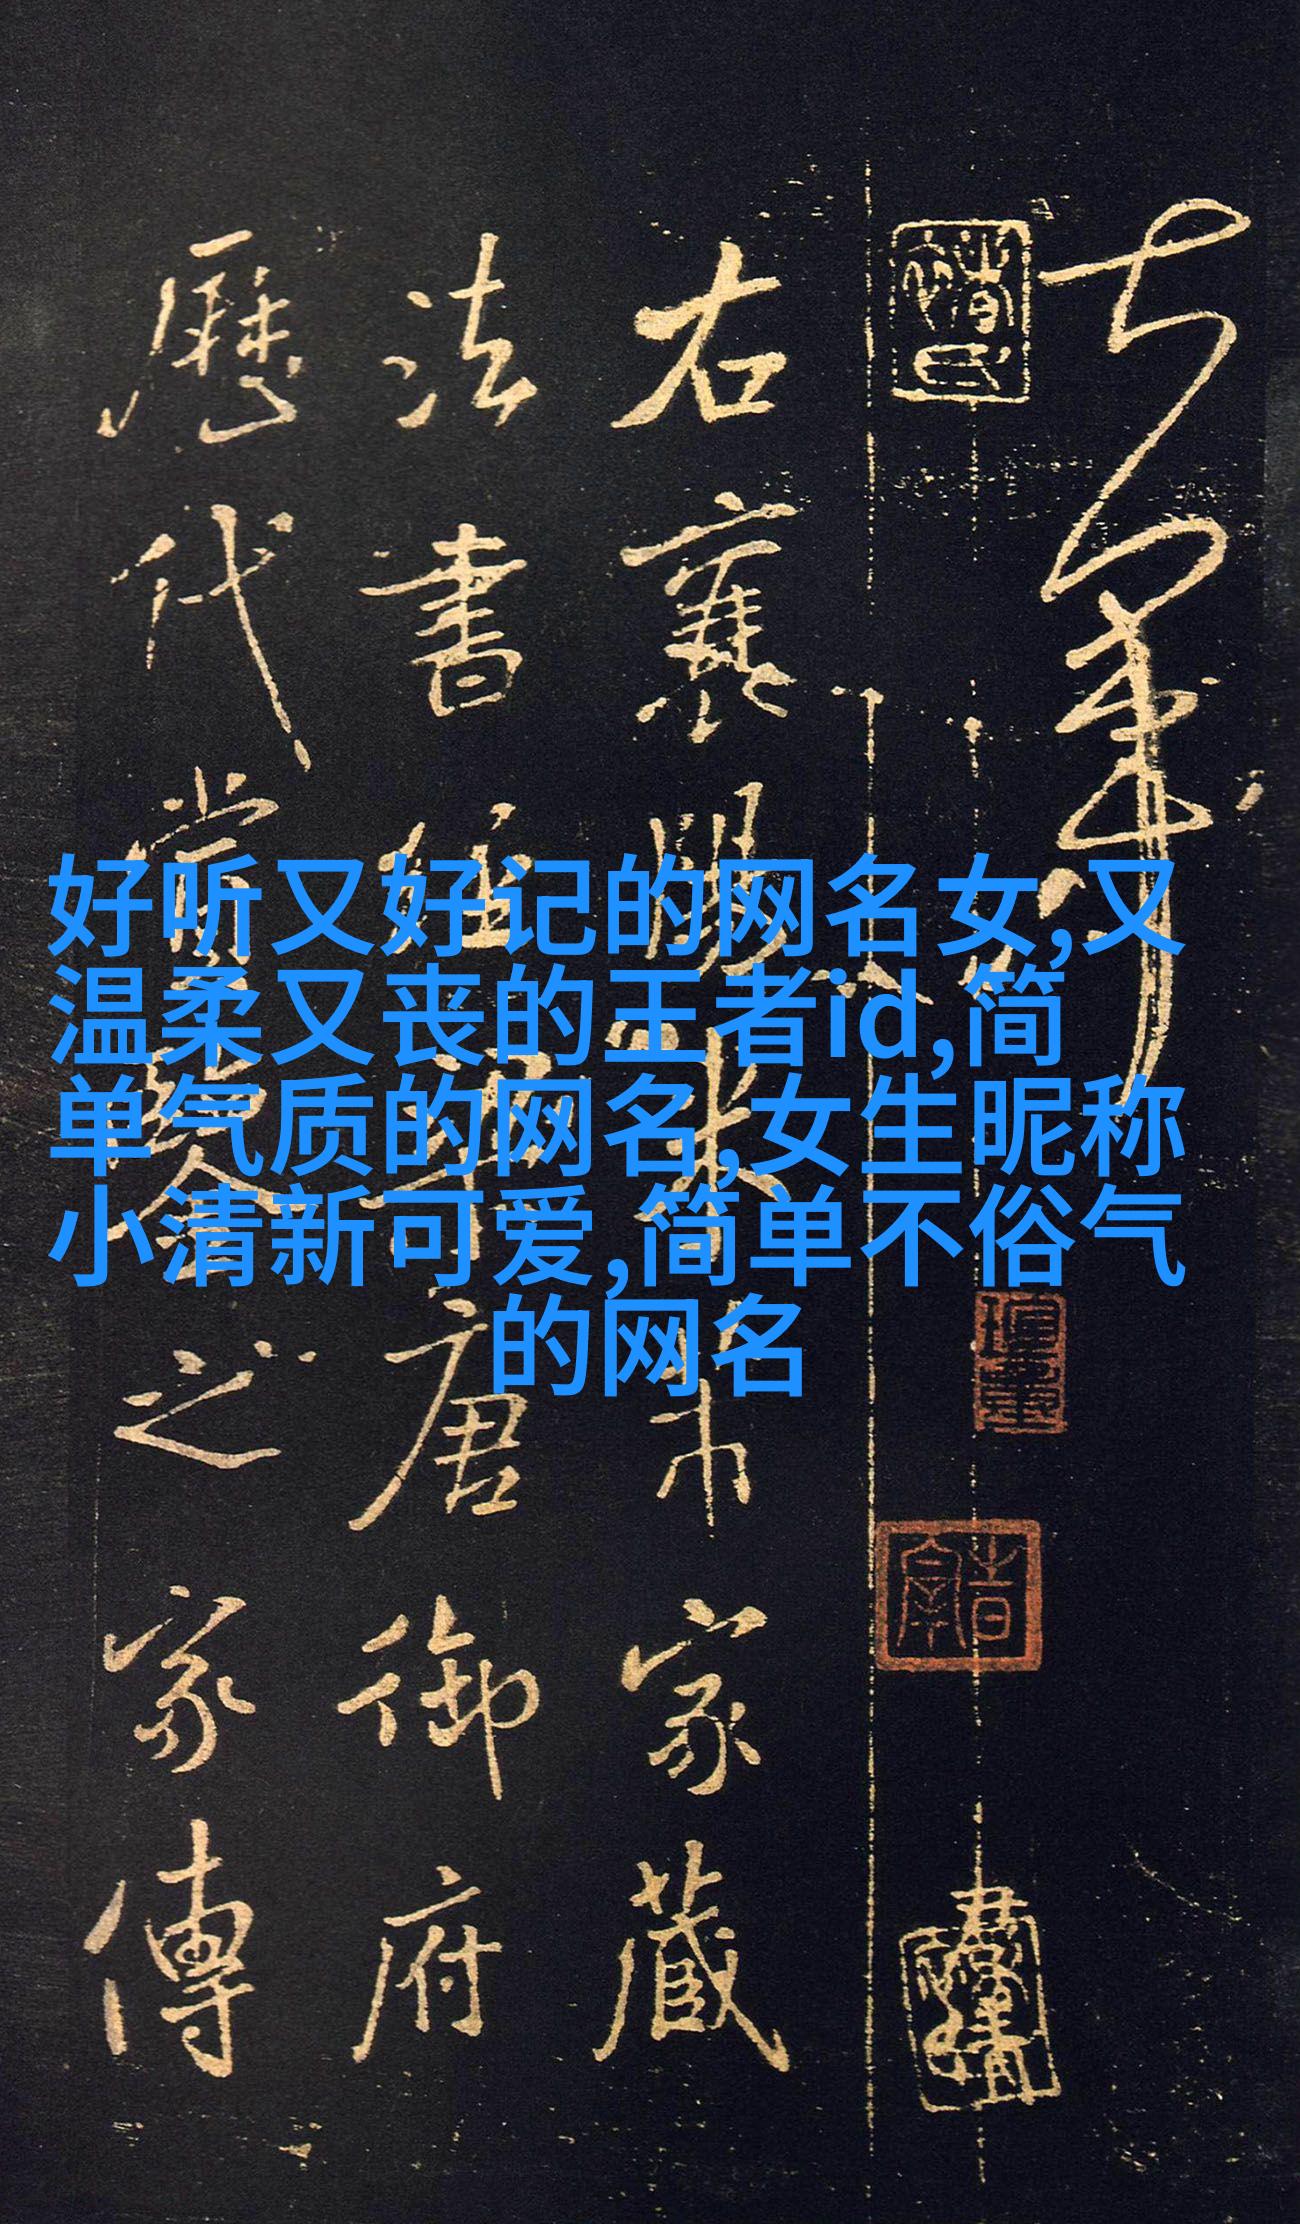 好听又好记的网名女,又
温柔又丧的王者id,简
单气质的网名,女生昵称
小清新可爱,简单不俗气
的网名
右襄陽米芾家藏
法書經唐御府
歷代賞鑒之家傳